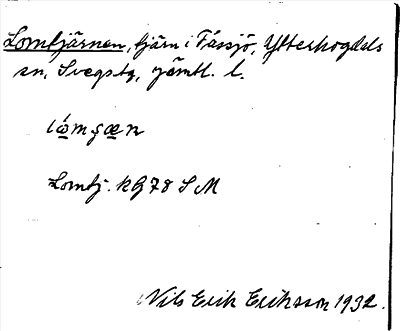 Lomtjärnen, tjärn i Fåssjö, Ytterhogdals
sn, Svegs tg, Jämtl. l.
Lomtj. kG78 SM
Nils Erik Eriksson 1932.